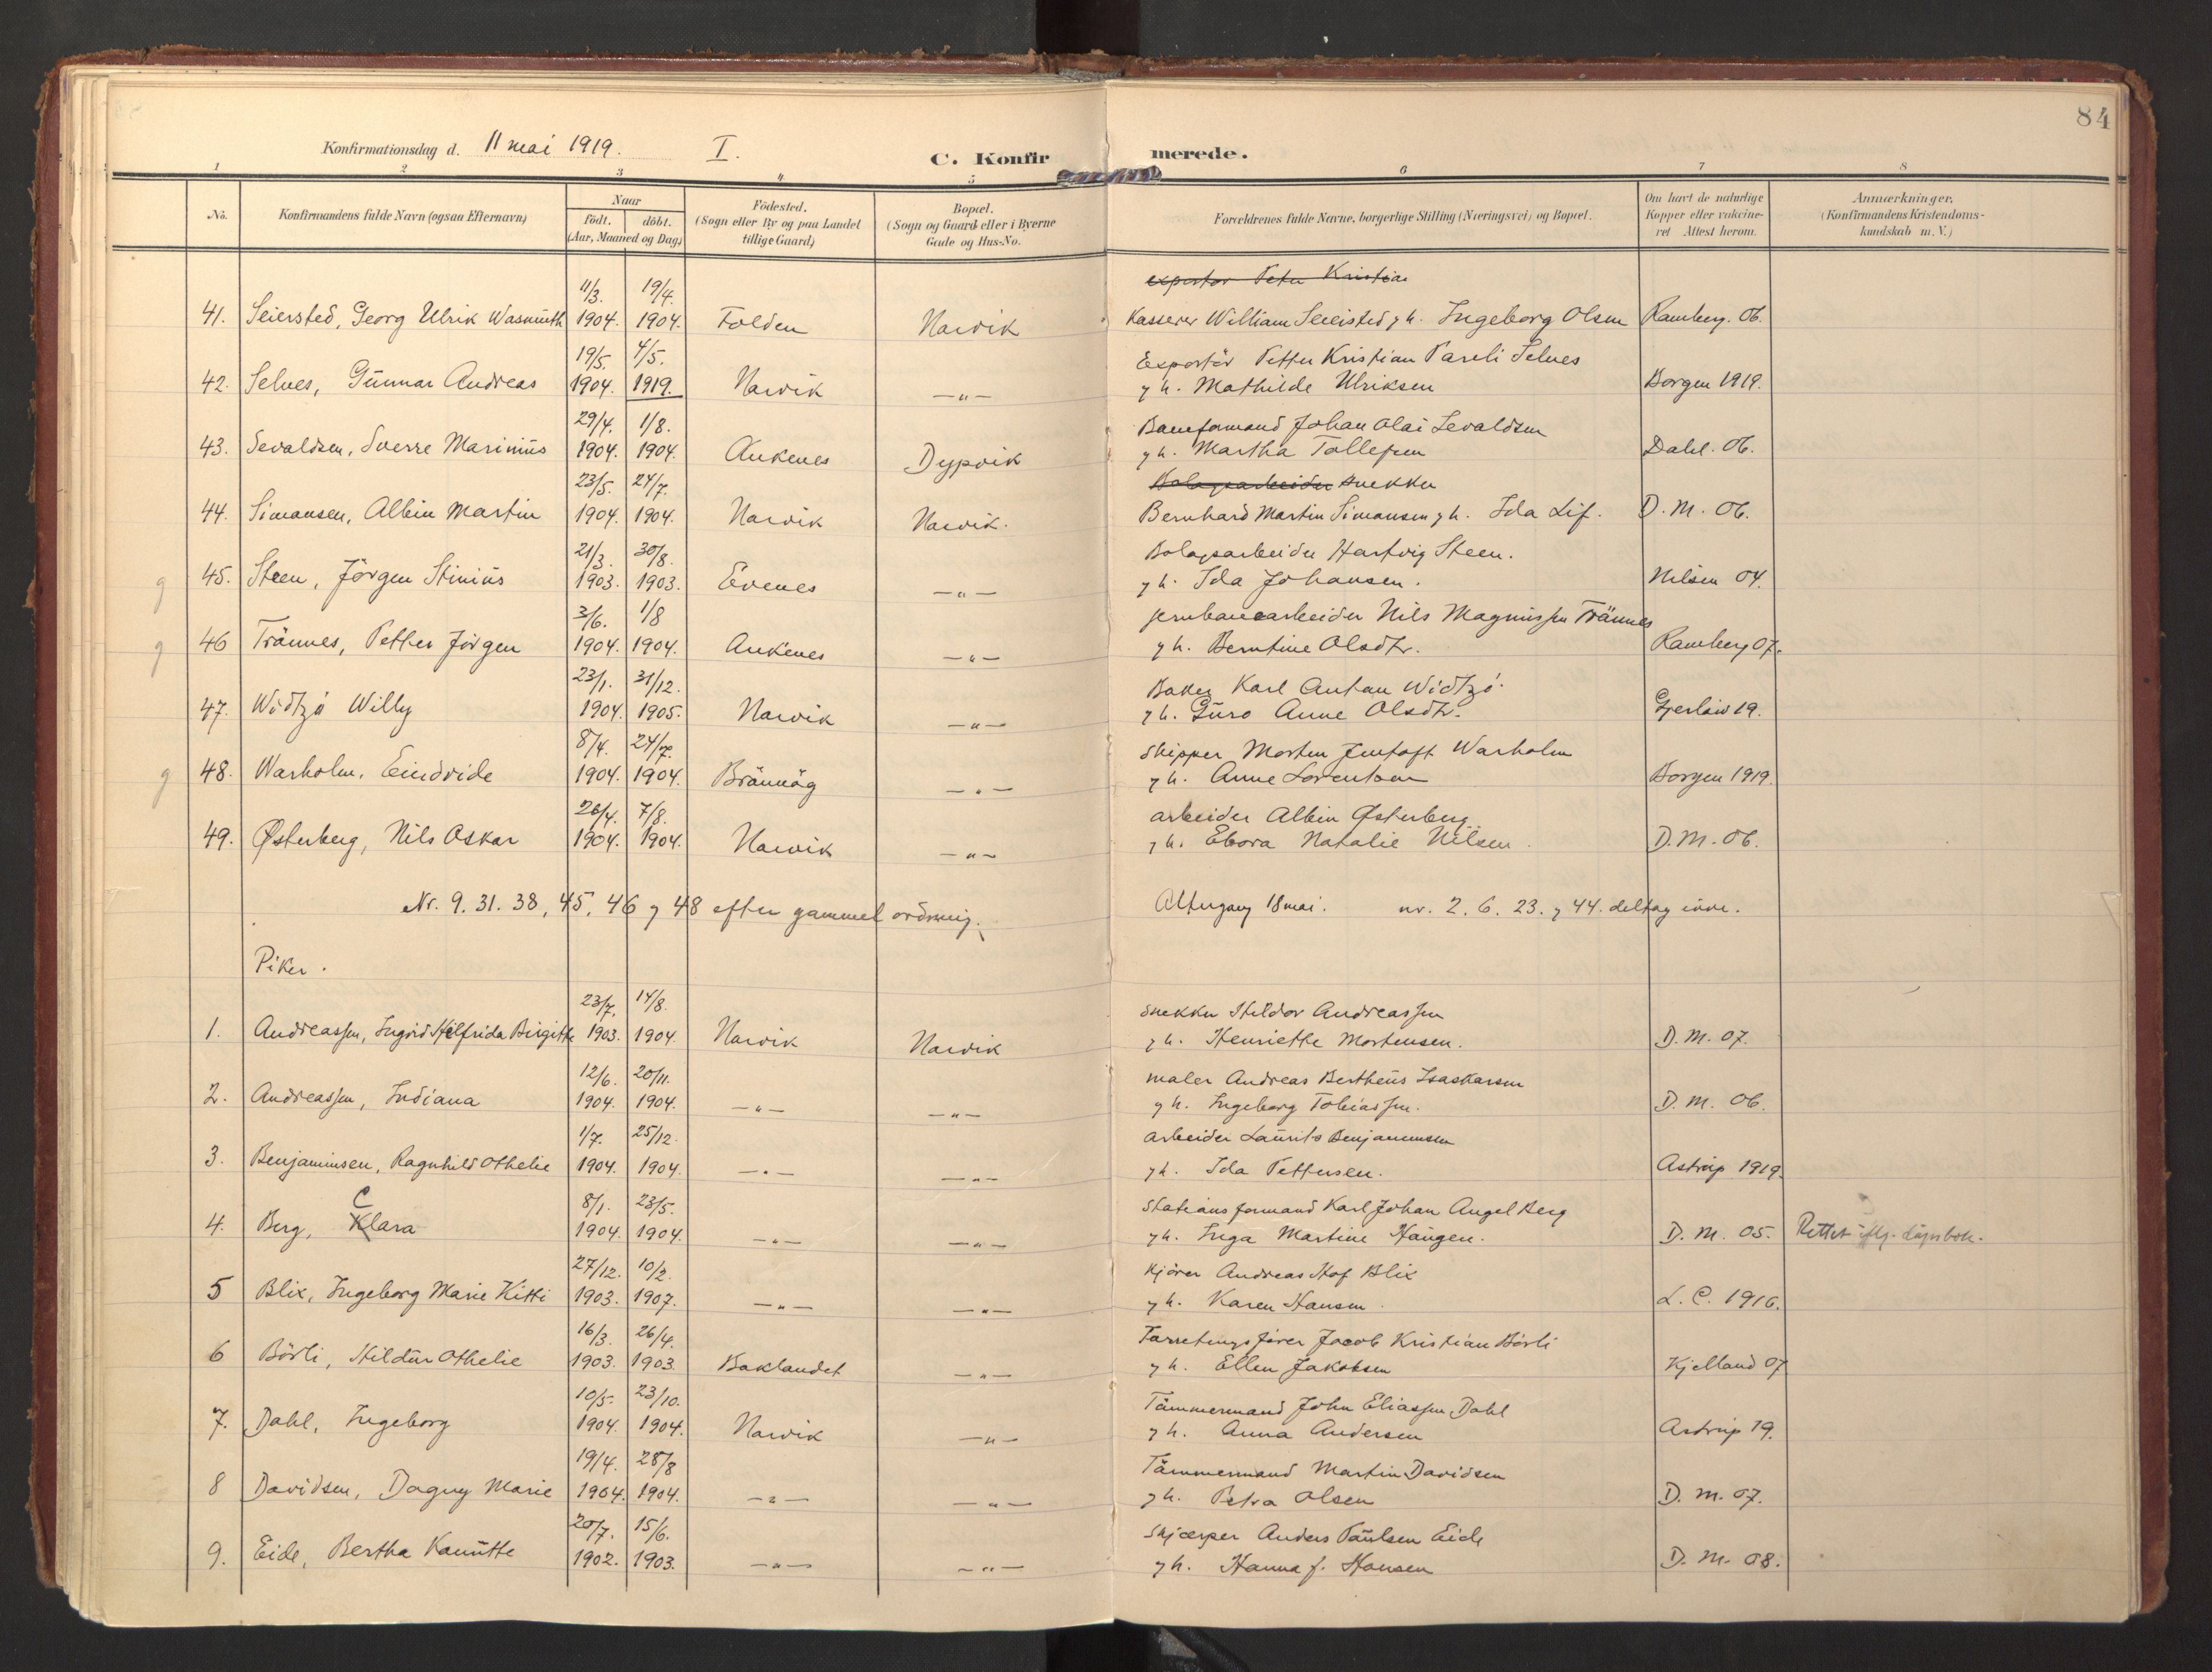 84
Konfirmationsdag d. 11 mai 1919. I. C. Konfirmerede.
1 2 3 4 5 6 7 8
No. Konfirmandens fulde Navn (ogsaa Efternavn) Naar födt. döbt. (Aar, Maaned og Dag) Födested. (Sogn eller By og paa Landet tillige Gaard) Bopæl. (Sogn og Gaard eller i Byerne Gade og Hus-No. Forældrenes fulde Navne, borgerlige Stilling (Næringsvei) og Bopæl. Om havt de naturlige Kopper eller vakcineret Attest herom. Anmærkninger. (Konfirmandens Kristendomskundskab m. V.)
exportør Petter Kristian
11/3. 19/4.
41. Seiersted, Georg Ulrik Wasmuth 1904. 1904. Folden Narvik Kasserer William Seiersted g h. Ingeborg Olsen Ramberg. 06.
19/5. 4/5. Exportör Petter Kristian Pareli Selnes
42. Selnes, Gunnar Andreas 1904. 1919. Narvik —„— g h. Mathilde Ulriksen Borgen 1919.
29/4. 1/8. Baneformand Johan Olai Sevaldsen
43. Sevaldsen, Sverre Marinius 1904. 1904. Ankenes Dypvik g h. Martha Tollefsen Dahl. 06.
23/5. 24/7. Bolagsarbeider snekker
44. Simonsen, Albin Martin 1904. 1904. Narvik Narvik. Bernhard Martin Simonsen g h. Ida Lif. D. M. 06.
21/3. 30/8. Bolagsarbeider Hartvig Steen.
g 45. Steen, Jörgen Stinius 1903. 1903. Evenes —„— g h. Ida Johansen. Nilsen 04.
3/6. 1/8 jernbanearbeider Nils Magnussen Trännes
g 46 Trännes, Petter Jörgen 1904. 1904. Ankenes —„— g h. Berntine Olsdtr. Ramberg 07.
23/1. 31/12. Baker Karl Anton Widtzö
47. Widtzö Willy 1904. 1905. Narvik —„— g h. Guro Anne Olsdtr. Gjerlöw 19.
8/4. 24/7. Skipper Morten Jentoft Warholm
g 48. Warholm, Eindride 1904. 1904. Brännög —„— g h. Anne Lorentsen Borgen 1919.
26/4. 7/8. arbeider Albin Østerberg
49. Østerberg, Nils Oskar 1904. 1904. Narvik —„— g h. Ebora Natalie Nilsen D. M. 06.
Nr. 9. 31. 38, 45, 46 g 48 efter gammel ordning. Altergang 18 mai. nr. 2. 6. 23. g 44. deltog ikke.
Piker.
23/7. 14/8. snekker Hildor Andreassen
1. Andreassen, Ingrid Helfrida Birgitte 1903. 1904. Narvik Narvik g h. Henriette Mortensen. D. M. 07.
12/6. 20/11. maler Andreas Bertheus Isaskarsen
2. Andreassen, Indiana 1904. 1904. —„— —„— g h. Ingeborg Tobiassen. D. M. 06.
1/7. 25/12. arbeider Laurits Benjaminsen
3. Benjaminsen, Ragnhild Othelie 1904. 1904. —„— —„— g h. Ida Pettersen. Astrup 1919.
C 8/1. 23/5. Stationsformand Karl Johan Angel Berg
4. Berg, Klara 1904. 1904. —„— —„— g h. Inga Martine Haugen. D. M. 05. Rettet iflg. dåpsbok.
27/12. 10/2. Kjörer Andreas Hof Blix
5 Blix, Ingeborg Marie Kitti 1903. 1907. —„— —„— g h. Karen Hansen. L. C. 1916.
16/3. 26/4. Forretningsfører Jacob Kristian Börli
6 Börli, Hildur Othelie 1903. 1903. Baklandet —„— g h. Ellen Jakobsen Kjelland 07
10/5. 23/10. Tömmermand John Eliassen Dahl
7. Dahl, Ingeborg 1904. 1904. Narvik —„— g h. Anna Andersen Astrup 19.
19/4. 28/8 Tömmermand Martin Davidsen
8 Davidsen, Dagny Marie 1904. 1904. —„— —„— g h. Petra Olsen D. M. 07.
20/7. 15/6. Skjærper Anders Paulsen Eide
9. Eide, Bertha Kanutte 1902. 1903. —„— —„— g h. Hanna f. Hansen D. M. 08.